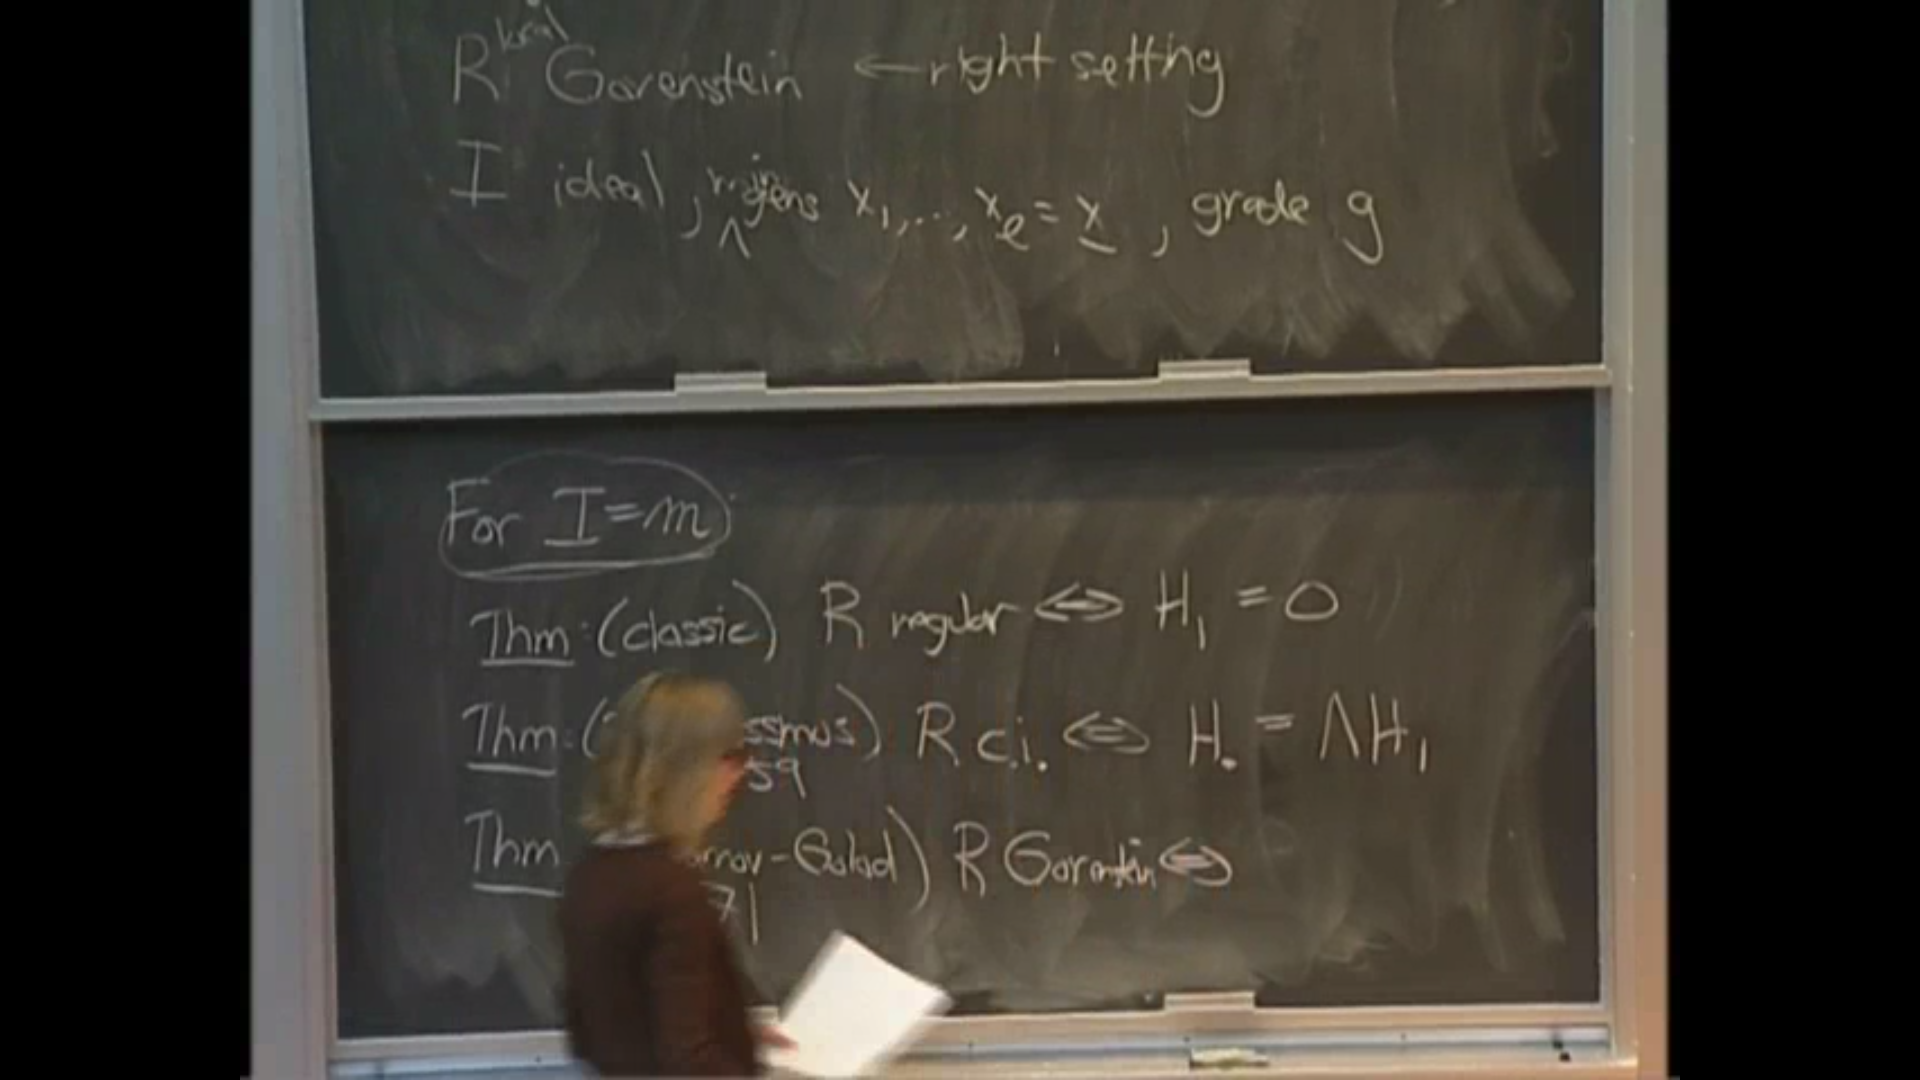 R local Gorenstein ← right setting
I ideal, min gens x₁,..., xₑ = x, grade g
For I = m
Thm: (classic) R regular ⇔ H₁ = 0
Thm: ( ssmus) R c.i. ⇔ H. = ΛH₁
59
Thm Golod) R Gorenstein ⇔
71